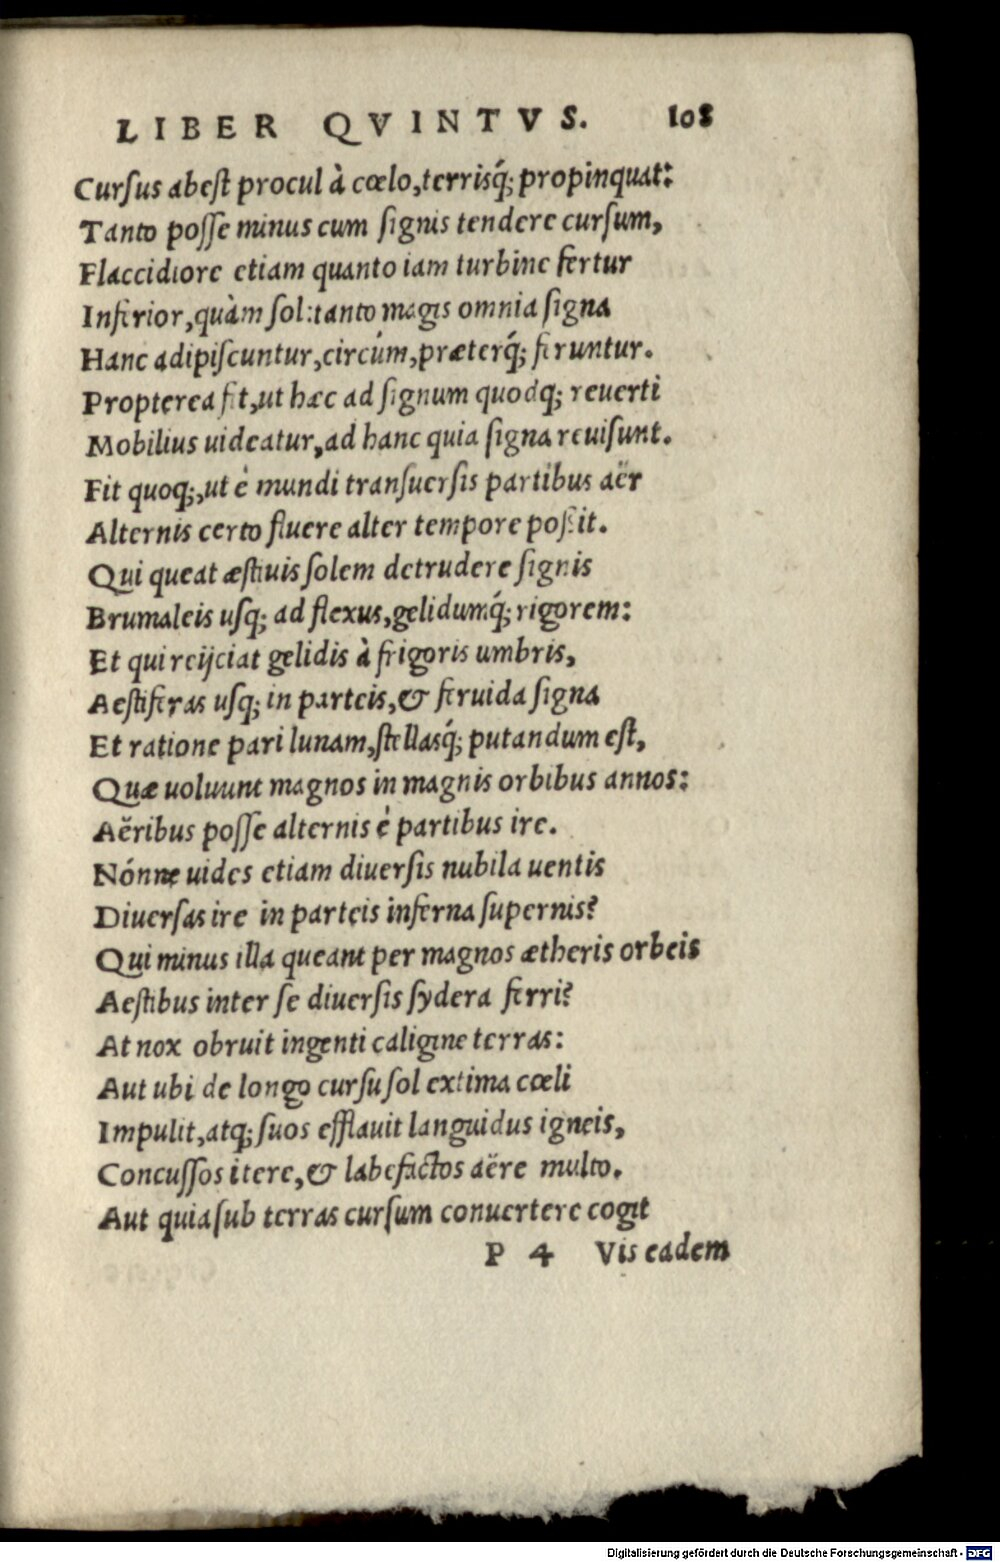 LIBER QVINTVS. 108
Cursus abest procul à cœlo,terrisq́; propinquat:
Tanto posse minus cum signis tendere cursum,
Flaccidiore etiam quanto iam turbine fertur
Inferior,quàm sol:tanto magis omnia signa
Hanc adipiscuntur,circúm,præterq́; feruntur.
Propterea fit,ut hæc ad signum quodq; reuerti
Mobilius uideatur,ad hanc quia signa reuisunt.
Fit quoq;,ut è mundi transuersis partibus aër
Alternis certo fluere alter tempore possit.
Qui queat æstiuis solem detrudere signis
Brumaleis usq; ad flexus,gelidumq́; rigorem:
Et qui reijciat gelidis à frigoris umbris,
Aestiferas usq; in parteis,& feruida signa
Et ratione pari lunam,stellasq́; putandum est,
Quæ uoluunt magnos in magnis orbibus annos:
Aëribus posse alternis è partibus ire.
Nónne uides etiam diuersis nubila uentis
Diuersas ire in parteis inferna supernis?
Qui minus illa queant per magnos ætheris orbeis
Aestibus inter se diuersis sydera ferri?
At nox obruit ingenti caligine terras:
Aut ubi de longo cursu sol extima cœli
Impulit,atq; suos efflauit languidus igneis,
Concussos itere,& labefactos aëre multo.
Aut quia sub terras cursum conuertere cogit
P 4 Vis eadem
Digitalisierung gefördert durch die Deutsche Forschungsgemeinschaft - DFG